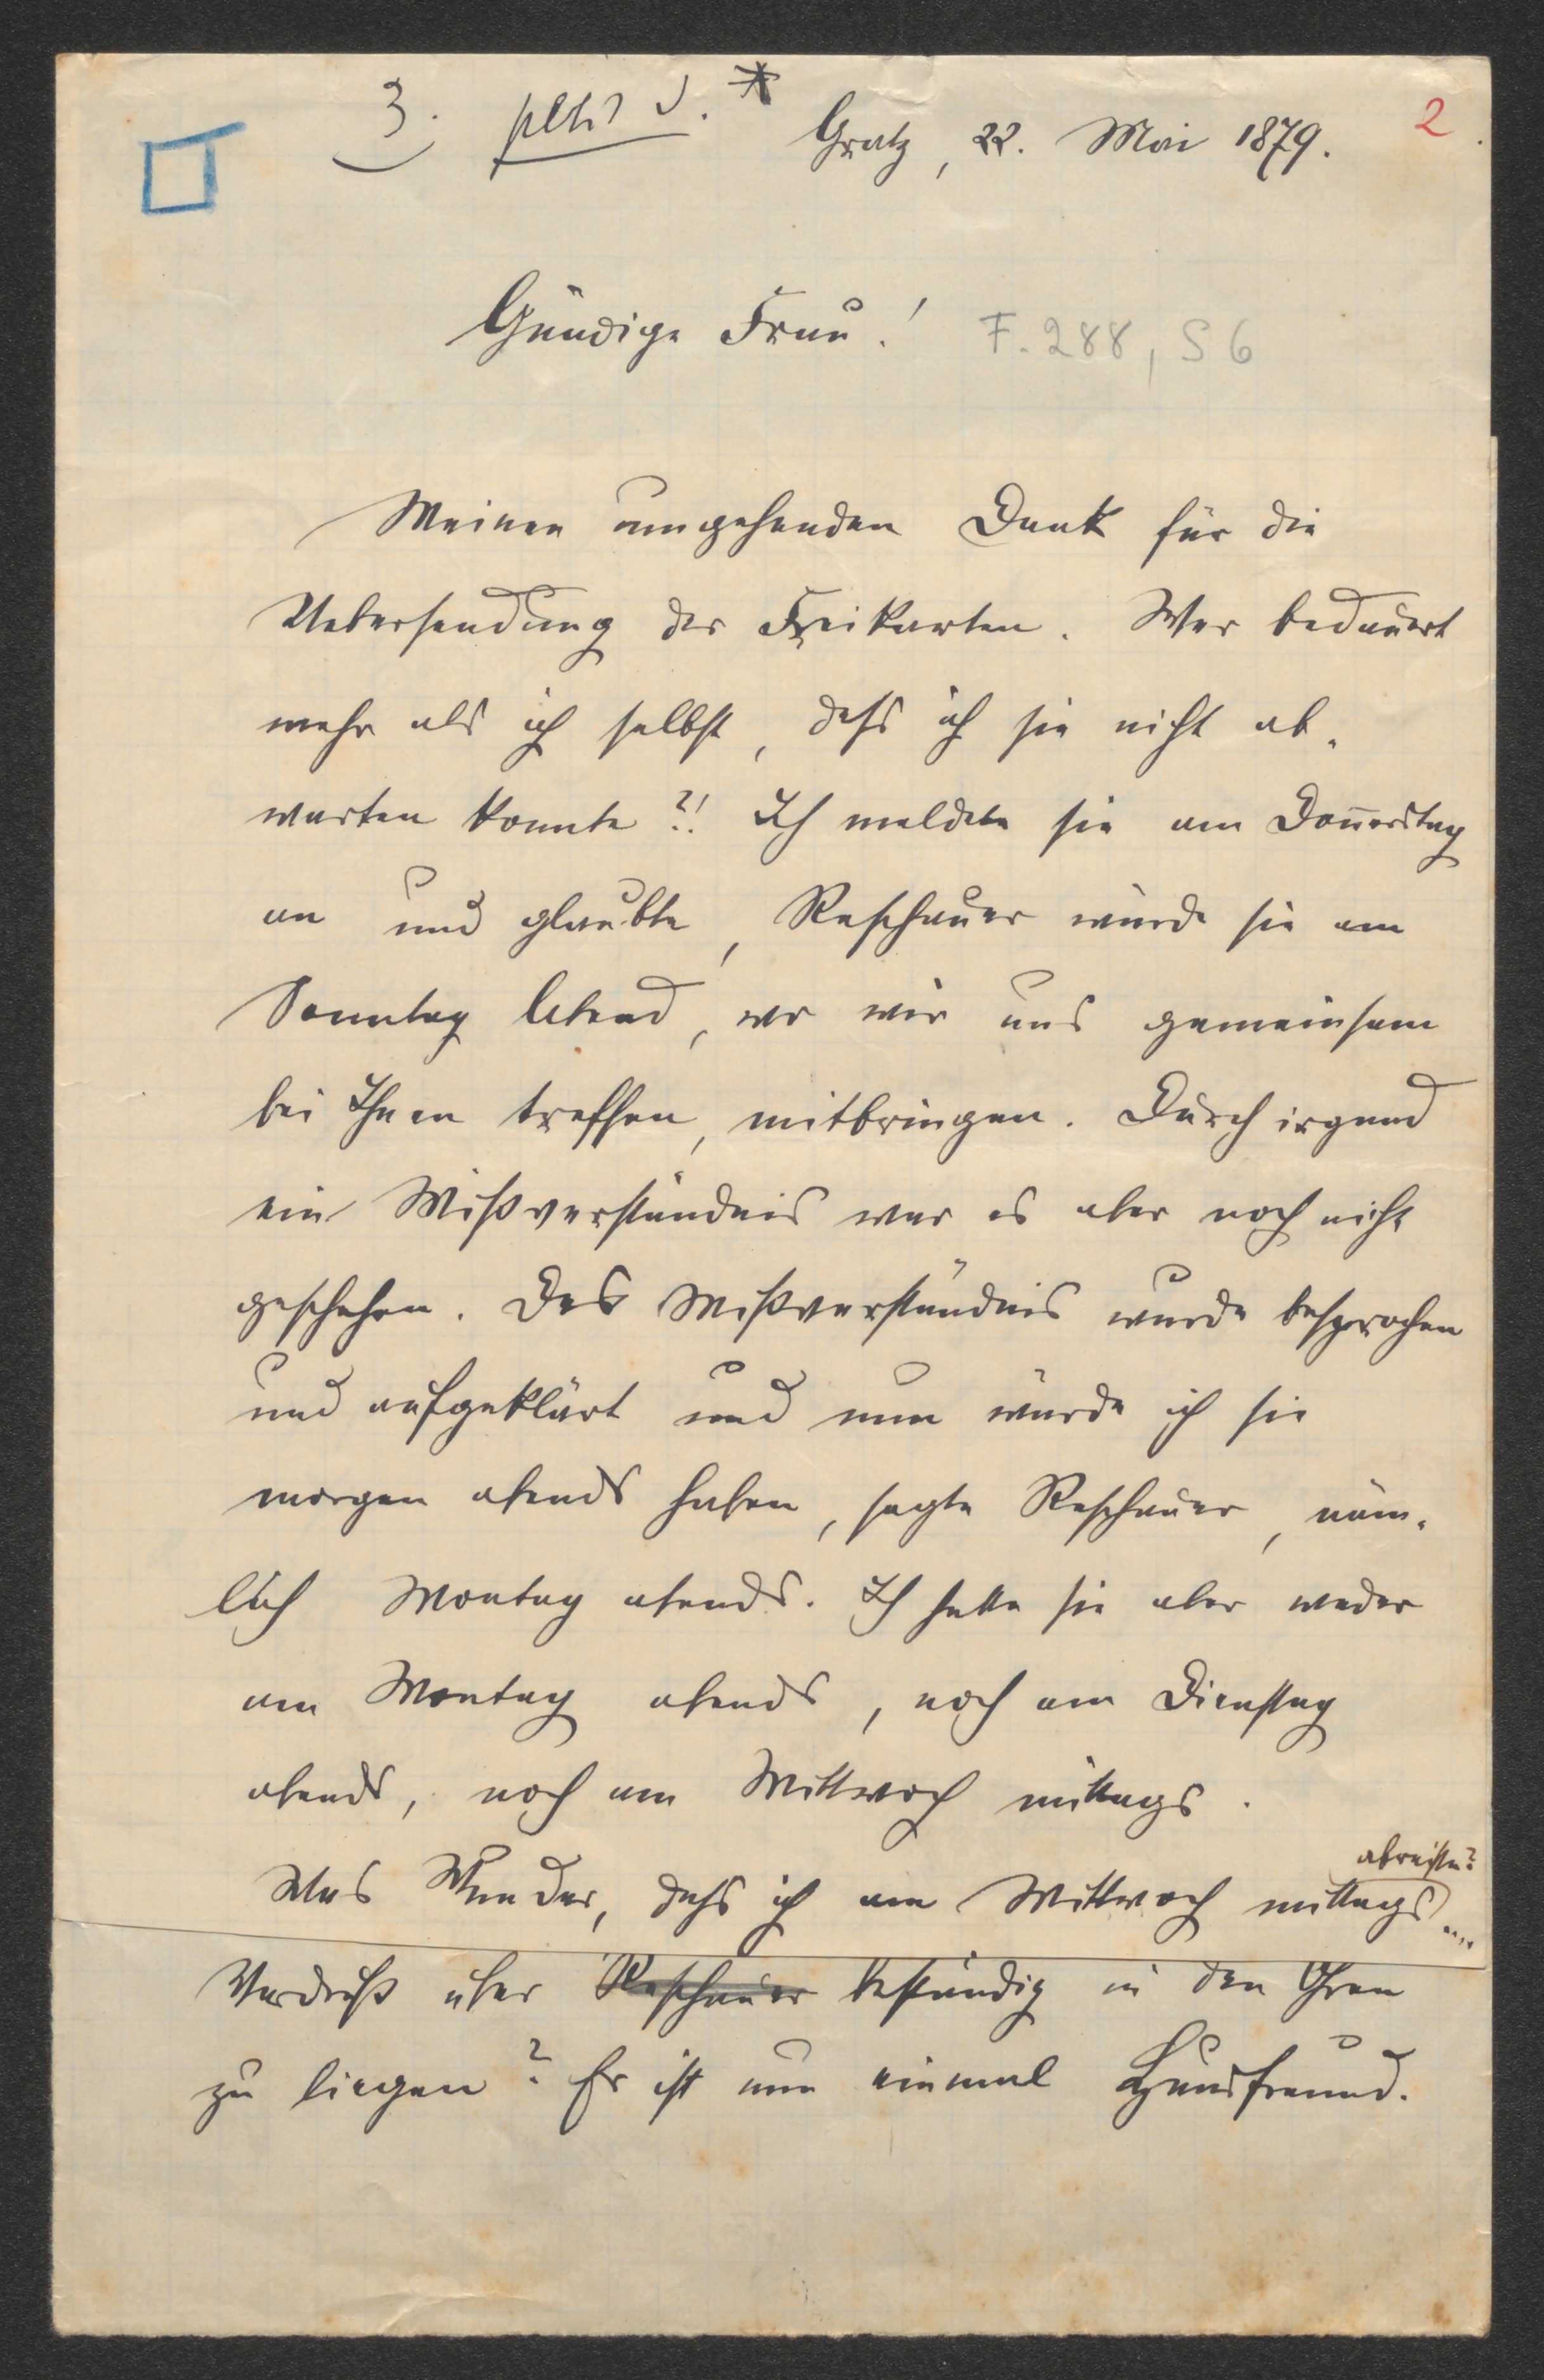 3.
Gratz, 22. Mai 1879.
2
Gnädige Frau!
F. 288, S 6
Meinen umgehenden Dank für die
Uebersendung der Freikarten. Wer bedauert
mehr als ich selbst, dass ich sie nicht ab-
warten konnte?! Ich meldete sie am Doñerstag
an und glaubte, Reschauer würde sie am
Sonntag Abend, wo wir uns gemeinsam
bei Ihnen treffen, mitbringen. Durch irgend
ein Mißverständnis war es aber noch nicht
geschehen. Das Mißverständnis wurde besprochen
und aufgeklärt und nun würde ich sie
morgen abends haben, sagte Reschauer, näm-
lich Montag abends. Ich hatte sie aber weder
am Montag abends, noch am Dienstag
abends, noch am Mittwoch mittags.
abreiste?
Was Wunder, dass ich am Mittwoch mittags....
Verdruß über Reschauer beständig in den Ohren
zu liegen? Er ist nun einmal Hausfreund.